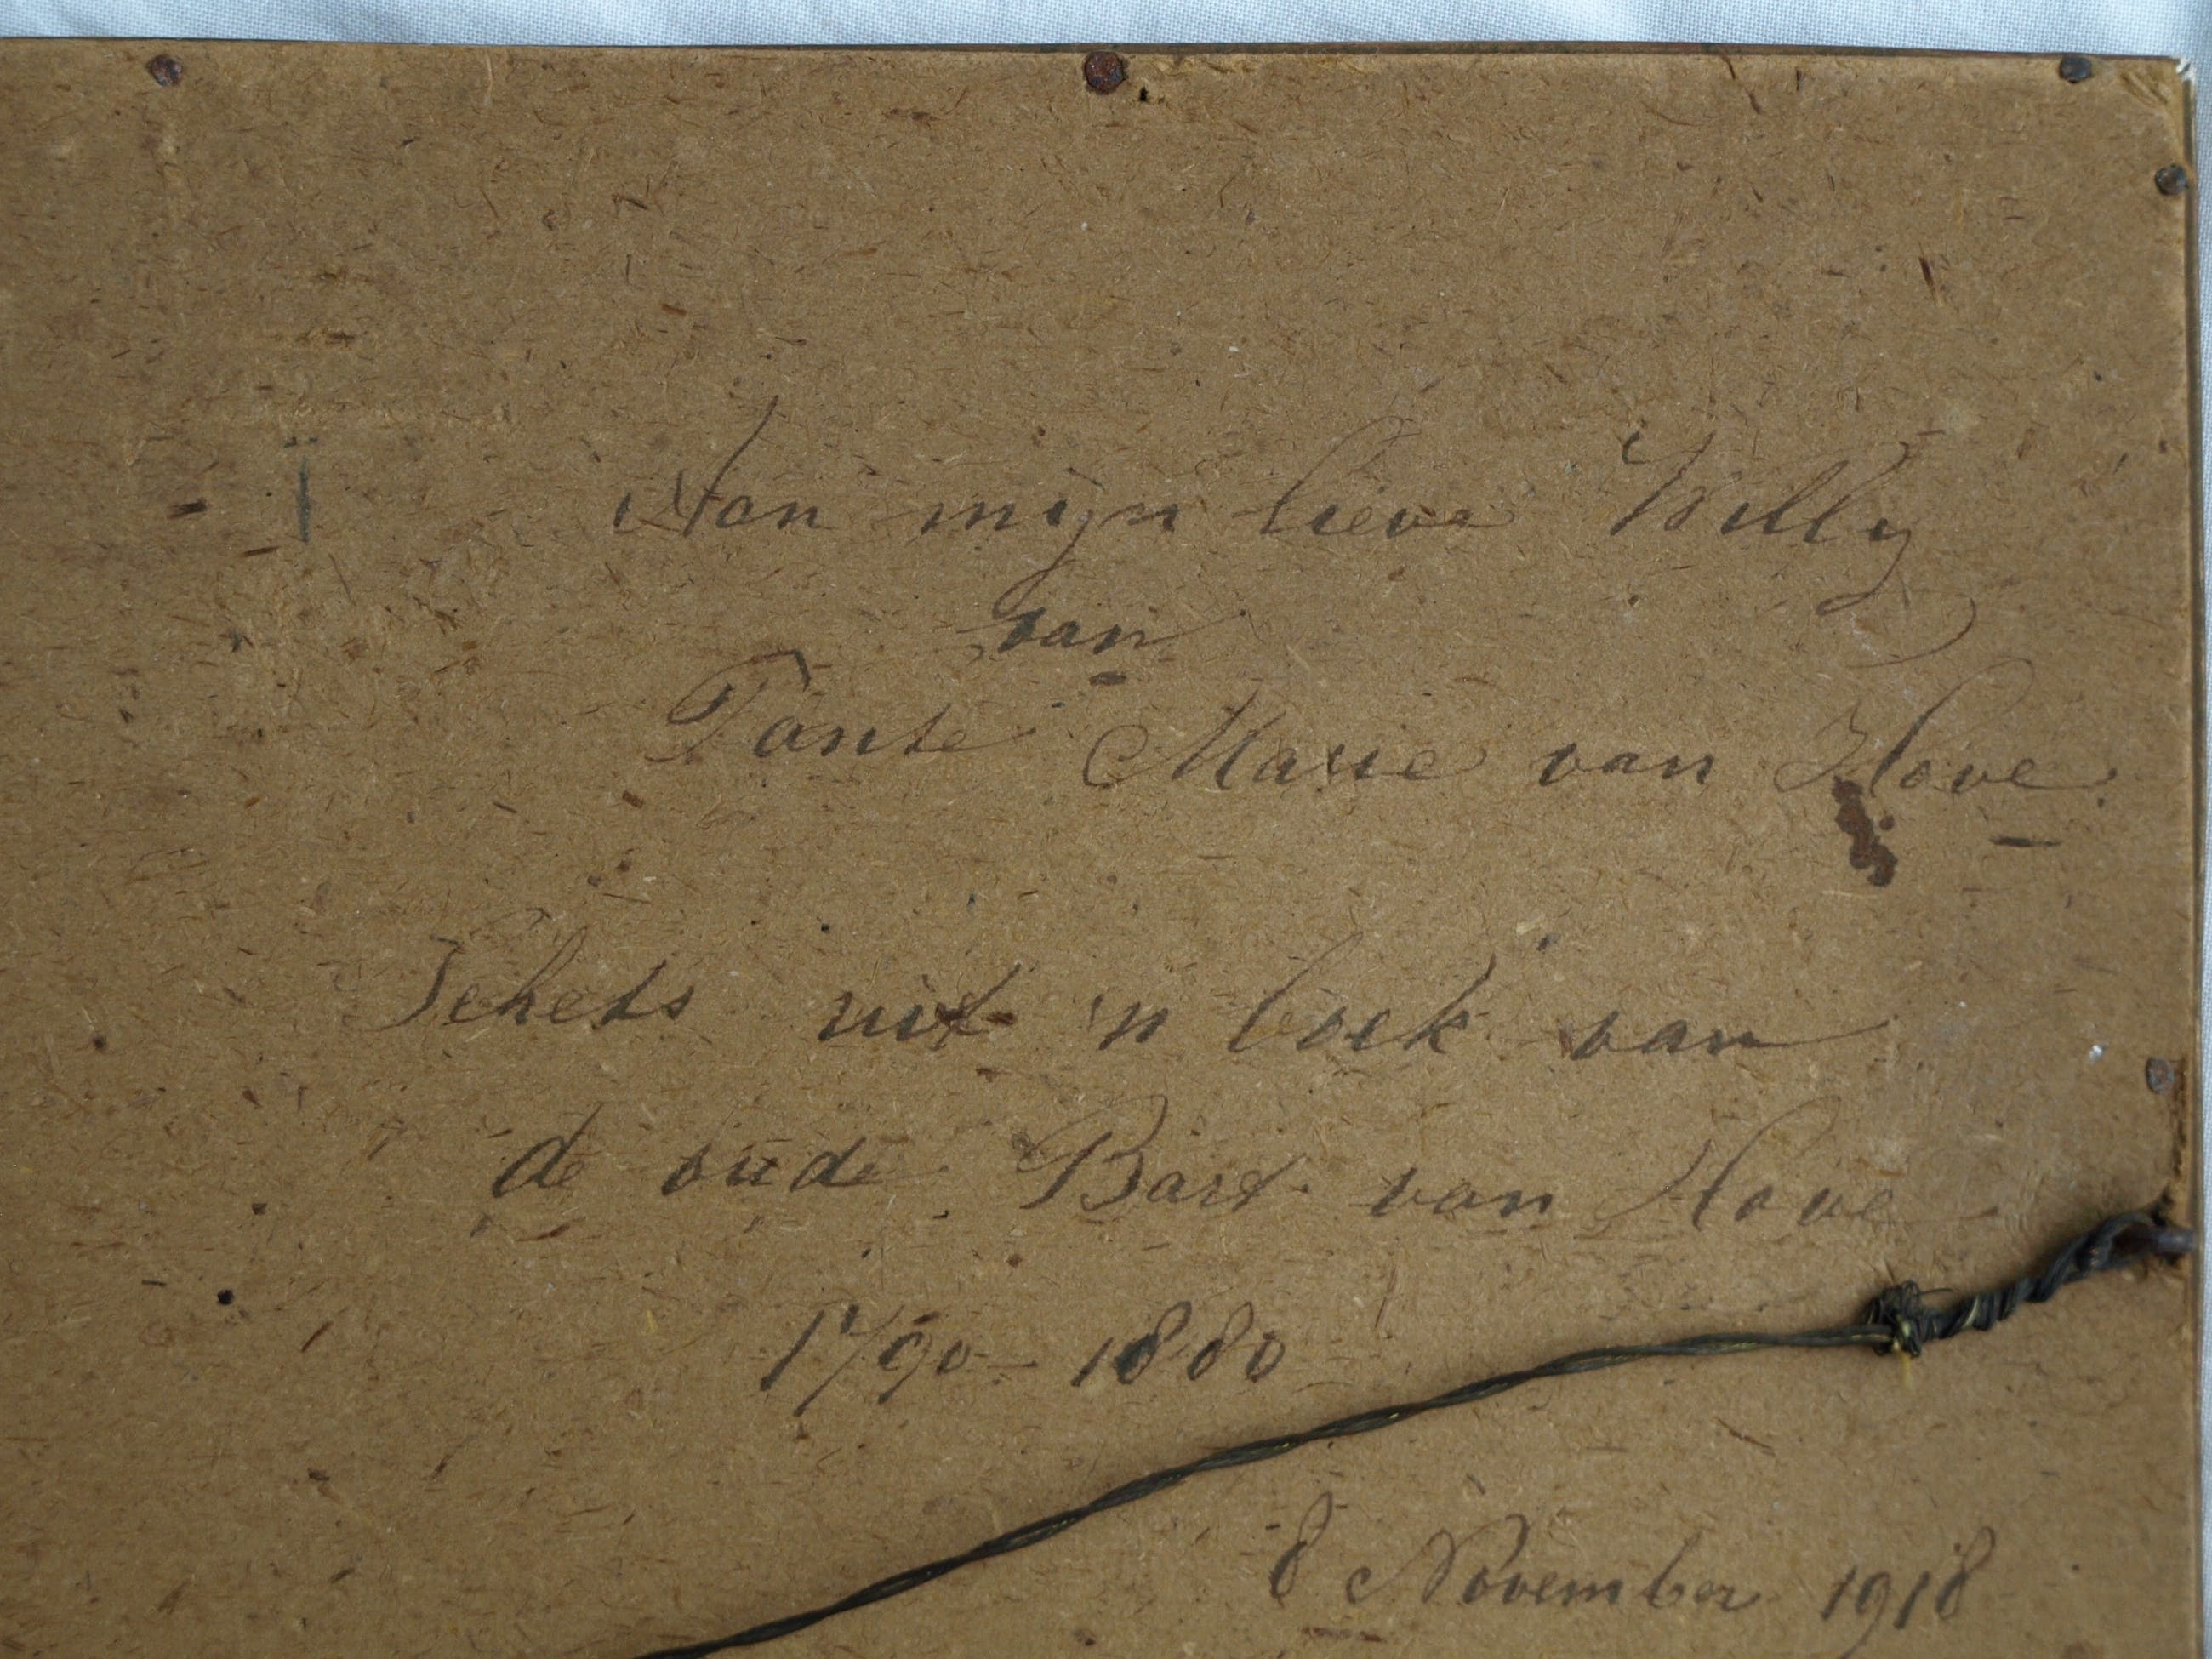 Aan mijn lieve Willy
van
Tante Marie van Hove.
Schets uit 'n boek van
de oude Bart van Hove
1790 - 1880
8 November 1918